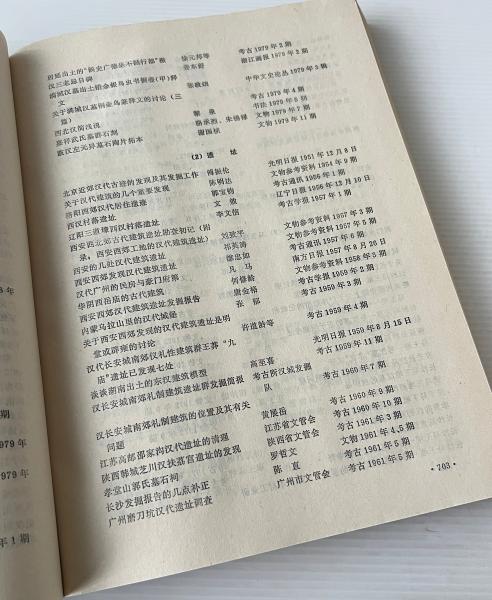 居延出土的“候史广德坐不循行部”檄 徐元邦等 考古1979年2期
汉三老忌日碑 浙江画报1979年2期
满城汉墓出土错金银鸟虫书铜壶(甲)释 张政烺 中华文史论丛1979年3辑
文
关于满城汉墓铜壶鸟篆释文的讨论(三 考古1979年4期
篇)
西北汉简浅说 书法1979年5期
嘉祥武氏墓群石刻 蒋英炬、朱锡禄 文物1979年7期
散汉左元异墓石陶片拓本 谢国桢 文物1979年11期
(2) 遗址
北京近郊汉代古迹的发现及其发掘工作 傅振伦 光明日报1951年12月8日
关于汉代建筑的几个重要发现 陈明达 文物参考资料1954年9期
洛阳西郊汉代居住遗迹 郭宝钧 考古通讯1956年1期
西汉村落遗址 文傲 辽宁日报1956年12月10日
辽阳三道壕西汉村落遗址 李文信 考古学报1957年1期
西安西北郊古代建筑遗址勘查初记(附
录,西安西郊工地的汉代建筑遗址) 刘致平 文物参考资料1957年3期
西安的几处汉代建筑遗址 祁英涛 文物参考资料1957年5期
西安西郊发现汉代建筑遗址 雒忠如 考古通讯1957年6期
汉代广州的民房与豪门府第 凡马 南方日报1957年8月26日
华阴西岳庙的古代建筑 何修龄 文物参考资料1958年3期
西安西郊汉代建筑遗址发掘报告 唐金裕 考古学报1959年2期
内蒙乌拉山垦的汉代城垣 张郁 考古1959年3期
关于西安西郊发现的汉代建筑遗址是明
堂或辟雍的讨论 许道龄等 考古1959年4期
汉代长安城南郊仪礼性建筑群王莽“九
庙”遗址已发现七处 光明日报1959年8月15日
谈谈湖南出土的东汉建筑模型 高至喜 考古1959年11期
汉长安城南郊礼制建筑遗址群发掘简报 考古所汉城发掘
队 考古1960年7期
汉长安城南郊礼制建筑的位置及其有关
问题 黄展岳 考古1960年9期
江苏高邮邵家沟汉代遗址的清理 江苏省文管会 考古1960年10期
陕西韩城芝川汉扶荔宫遗址的发现 陕西省文管会 考古1961年3期
孝堂山郭氏墓石祠 罗哲文 文物1961年4,5期
长沙发掘报告的几点补正 陈直 考古1961年5期
广州磨刀坑汉代遗址调查 广州市文管会 考古1961年5期
·703·